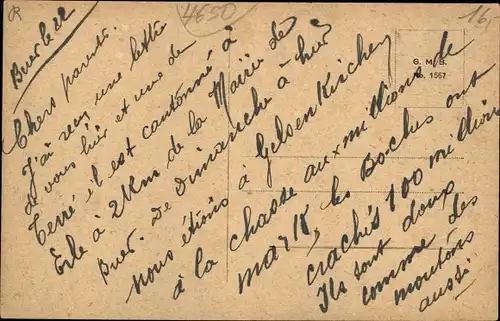 4650
16
G. M. B.
No. 1567
Buer le 22
Chers parents.
J'ai reçu une lettre
de vous hier et une de
Terré il est cantonné à
Erle à 2 Km de la Mairie de
Buer. De Dimanche à hier
nous étions à Gelsenkirchen
à la chasse aux millions de
marks, les Boches ont
crachés 100 millions
Ils sont doux
comme des
moutons
aussi.